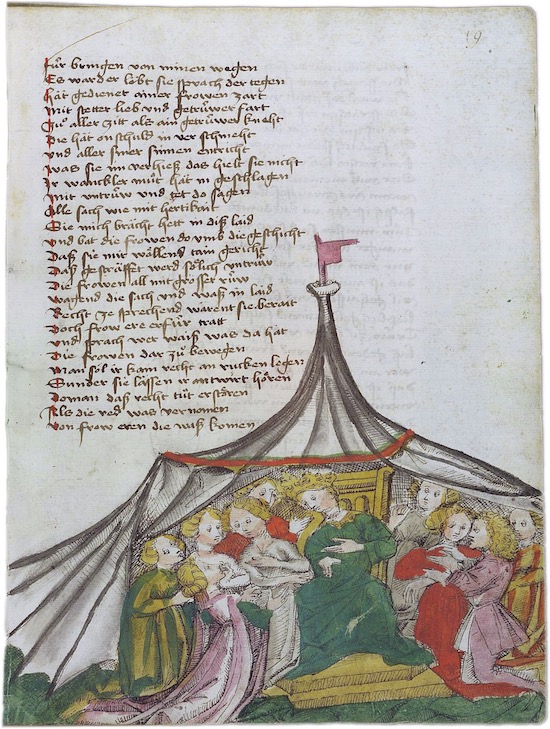 19
für bringen von minen wegen
Es ward er lobt sie sprach der tegen
hät gedienet ainer frowen zart
mit stetter lieb vnd getrüwer fart
Zuo aller zitt als ain getrüwer kneht
die hät on schuld in ver schmeht
vnd aller siner sinnen entricht
was sie im verhieß das hielt sie nicht
Ir wanckler muot hät in geschlagen
mit vntrüw vnd tet do sagen
Alle sach wie mit hertikait
Sie mich bracht hett in diß laid
vnd bat die frowen do vmb die geschicht
Daß sie mir wöllend tain gericht
Daß gestraffet werd sölich vntrüw
Die frowen all mit grosser rüw
wagend die sach vnd waß in laid
Recht zuo sprechend warent sie berait
Doch frow ere er für tratt
vnd sprach wer waiß was da hät
Die frowen dar zuo bewegen
man sol ir kain recht an rucken legen
Sunder sie lässen ir antwirt hören
Doman daß recht tuot erstören
Als die red was vernomen
Von frow eren die waß komen